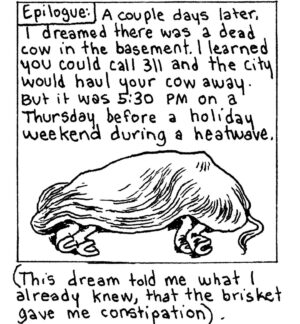 Epilogue: A couple days later,
I dreamed there was a dead
cow in the basement. I learned
you could call 311 and the city
would haul your cow away.
But it was 5:30 PM on a
Thursday before a holiday
weekend during a heatwave.
(This dream told me what I
already knew, that the brisket
gave me constipation).